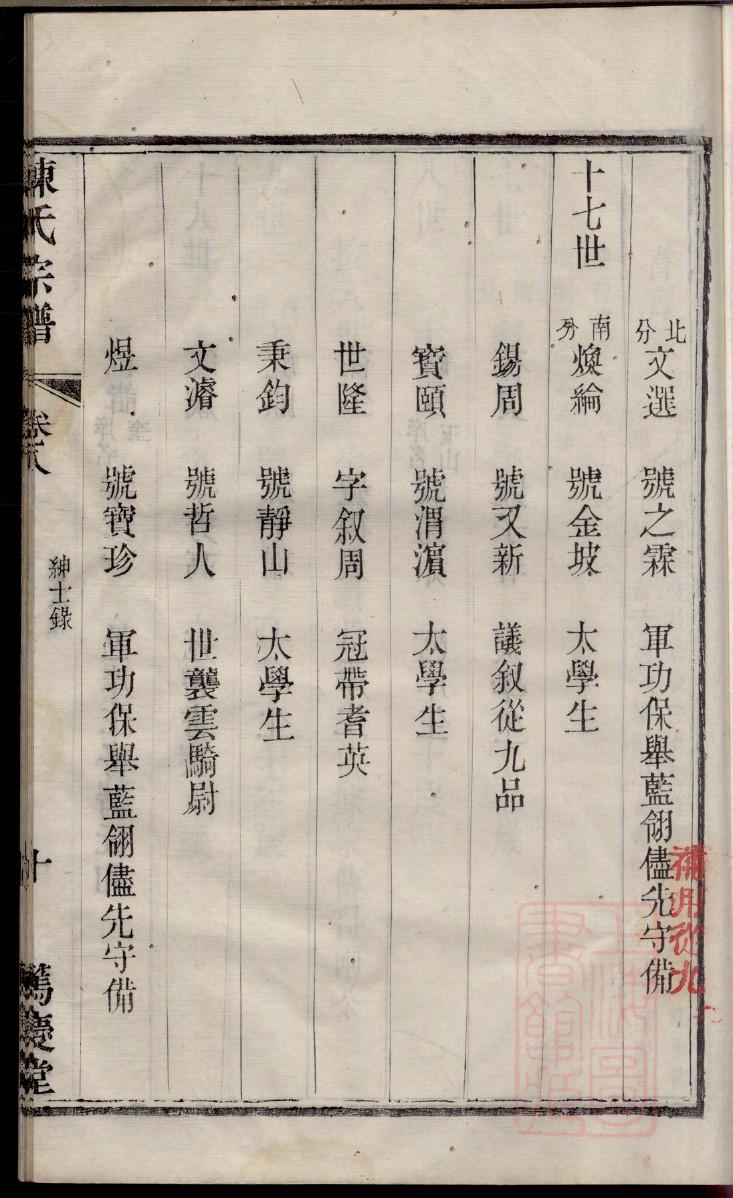 北分 文選 號之霖 軍功保舉藍翎儘先守備
補用從九
十七世 南房 煥綸 號金坡 太學生
錫周 號又新 議叙從九品
寶頤 號渭濵 太學生
世隆 字叙周 冠帶耆英
秉鈞 號靜山 太學生
文濬 號哲人 世襲雲騎尉
煜 號寶珍 軍功保舉藍翎儘先守備
陳氏宗譜 卷八 紳士錄 十 篤慶堂